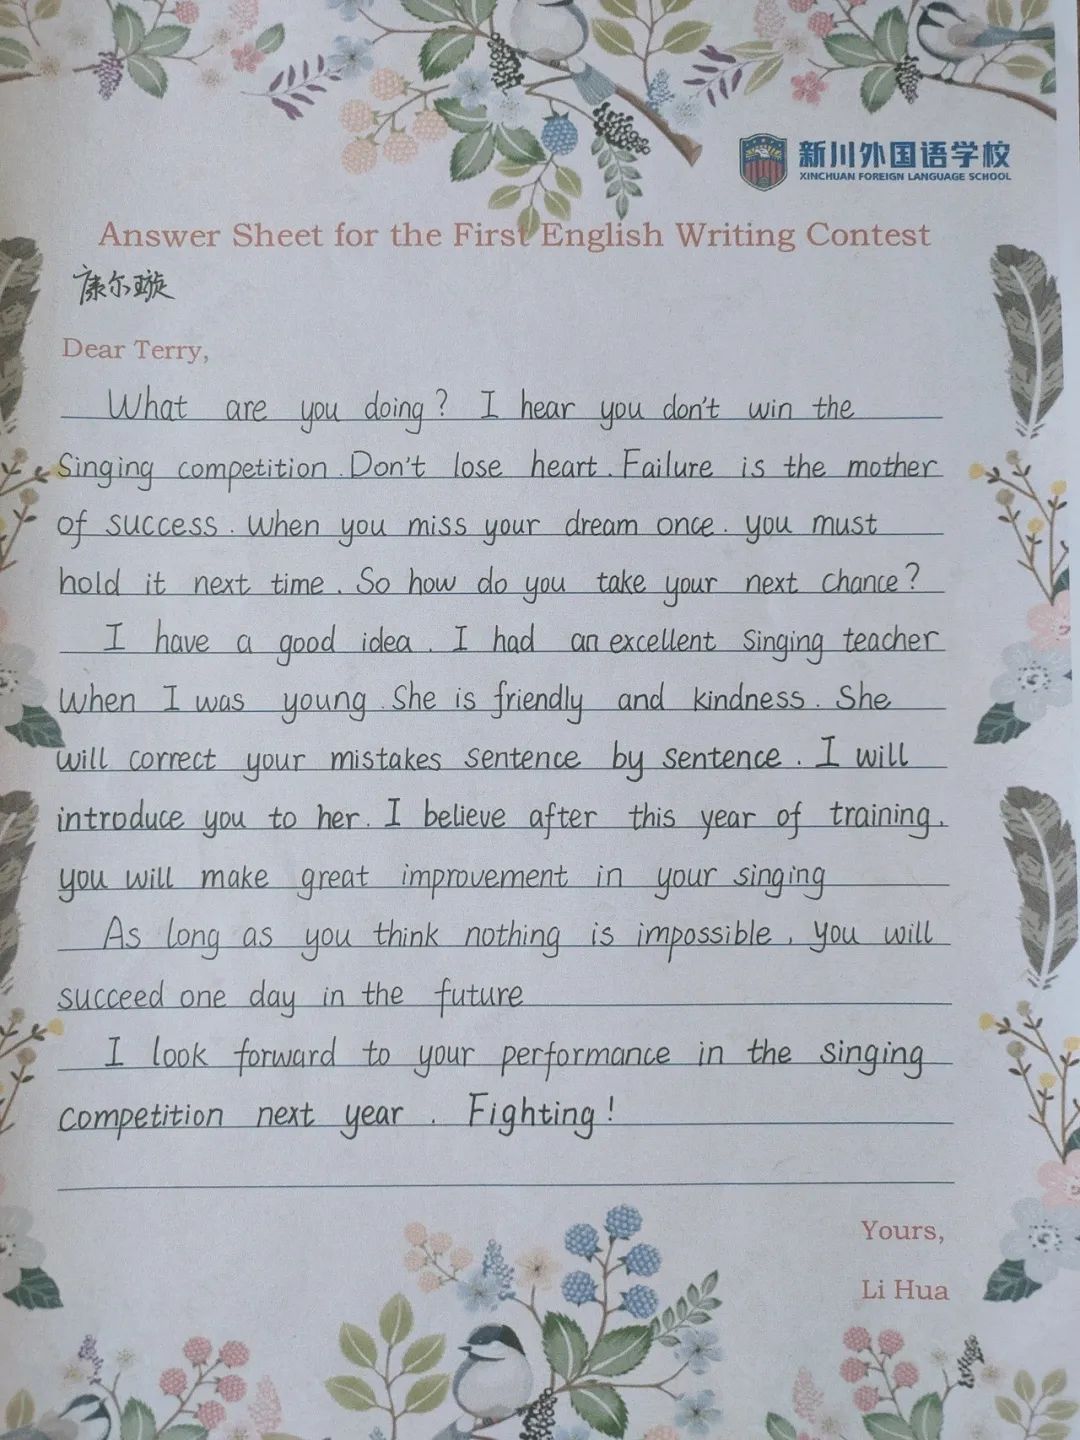 新川外国语学校
XINCHUAN FOREIGN LANGUAGE SCHOOL
Answer Sheet for the First English Writing Contest
康尔璇
Dear Terry,
What are you doing? I hear you don't win the
Singing competition. Don't lose heart. Failure is the mother
of success. When you miss your dream once. you must
hold it next time. So how do you take your next chance?
I have a good idea. I had an excellent singing teacher
When I was young. She is friendly and kindness. She
will correct your mistakes sentence by sentence. I will
introduce you to her. I believe after this year of training.
you will make great improvement in your singing
As long as you think nothing is impossible, you will
succeed one day in the future
I look forward to your performance in the singing
competition next year. Fighting!
Yours,
Li Hua